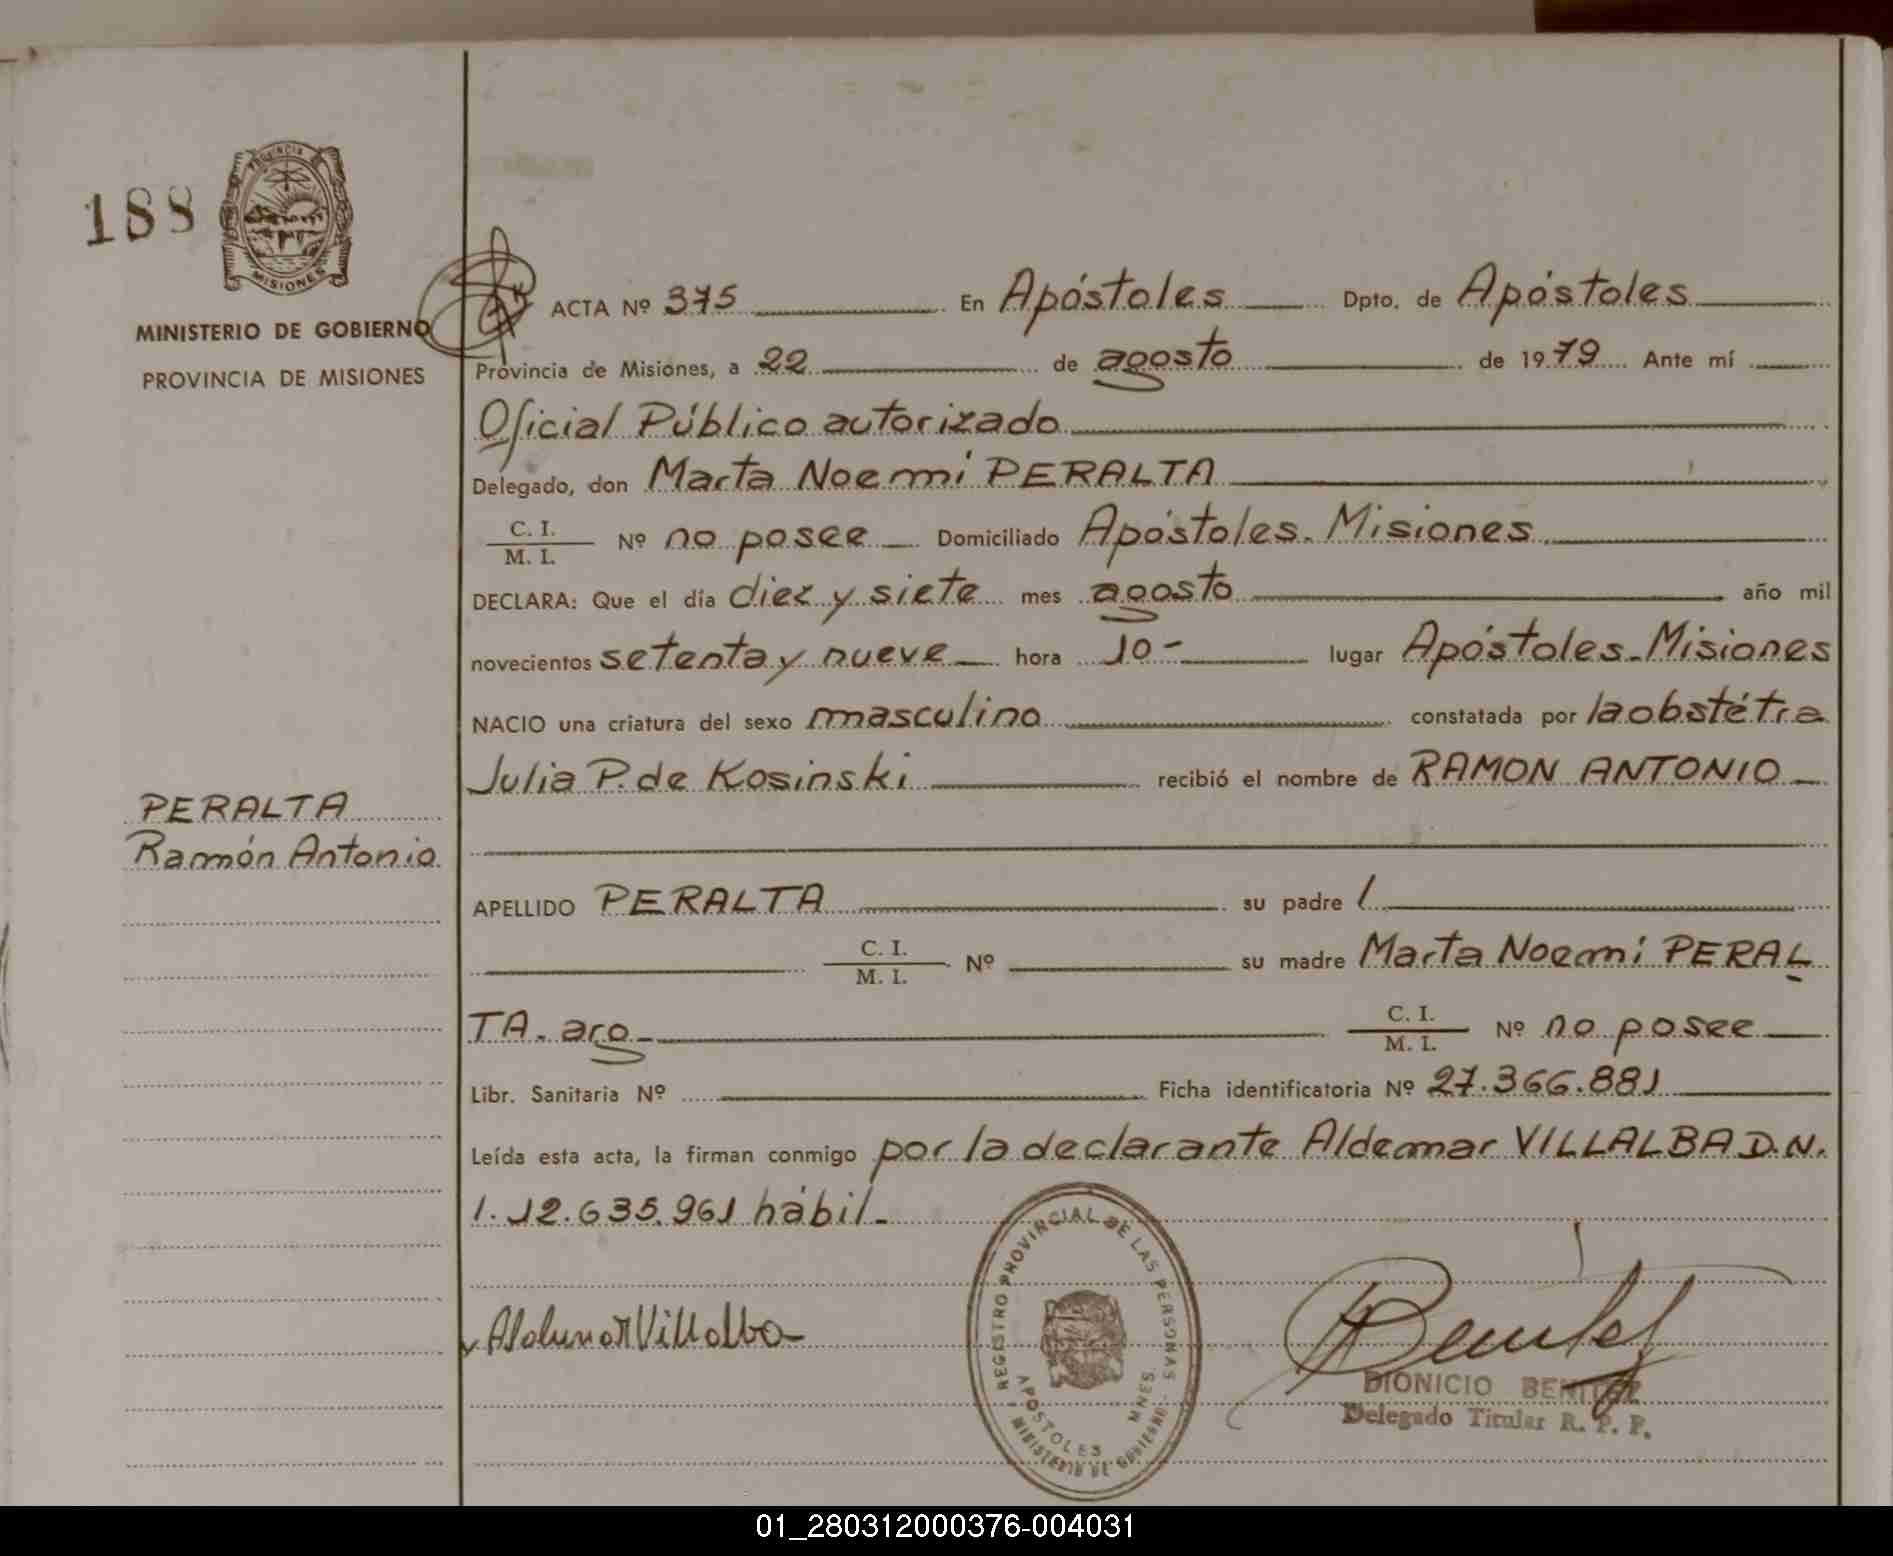 188
PROVINCIA
MISIONES
MINISTERIO DE GOBIERNO
PROVINCIA DE MISIONES
ACTA Nº 375 En Apóstoles Dpto. de Apóstoles
Provincia de Misiones, a 22 de agosto de 1979 Ante mí
Oficial Público autorizado
Delegado, don Marta Noemí PERALTA
C. I.
M. I. Nº no posee Domiciliado Apóstoles. Misiones
DECLARA: Que el día diez y siete mes agosto año mil
novecientos setenta y nueve hora 10- lugar Apóstoles-Misiones
NACIO una criatura del sexo masculino constatada por la obstétra
Julia P. de Kosinski recibió el nombre de RAMON ANTONIO
PERALTA
Ramón Antonio
APELLIDO PERALTA su padre /
C. I.
M. I. Nº su madre Marta Noemí PERAL
TA- arg- C. I.
M. I. Nº no posee
Libr. Sanitaria Nº Ficha identificatoria Nº 27.366.881
Leída esta acta, la firman conmigo por la declarante Aldemar VILLALBA D.N.
I. 12.635.961 hábil-
Aldemar Villalba
REGISTRO PROVINCIAL DE LAS PERSONAS
APOSTOLES MNES.
MINISTERIO DE GOBIERNO
Benitez
DIONICIO BENITEZ
Delegado Titular R. P. P.
01_280312000376-004031